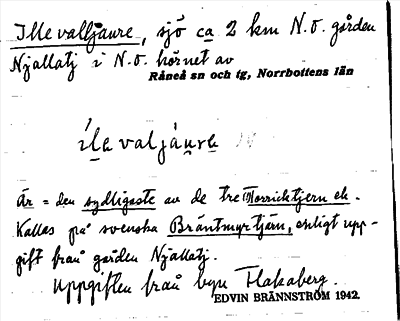 Illevalljaure, sjö ca 2 km N.O. gården
Njallatj i N.O. hörnet av
Råneå sn och tg, Norrbottens län
íle valjàure
Är = den sydligaste av de tre
Kallas på svenska Bräntmyrtjärn, enligt upp-
gift från gården Njallatj.
Uppgiften från byn Flakaberg.
EDVIN BRÄNNSTRÖM 1942.